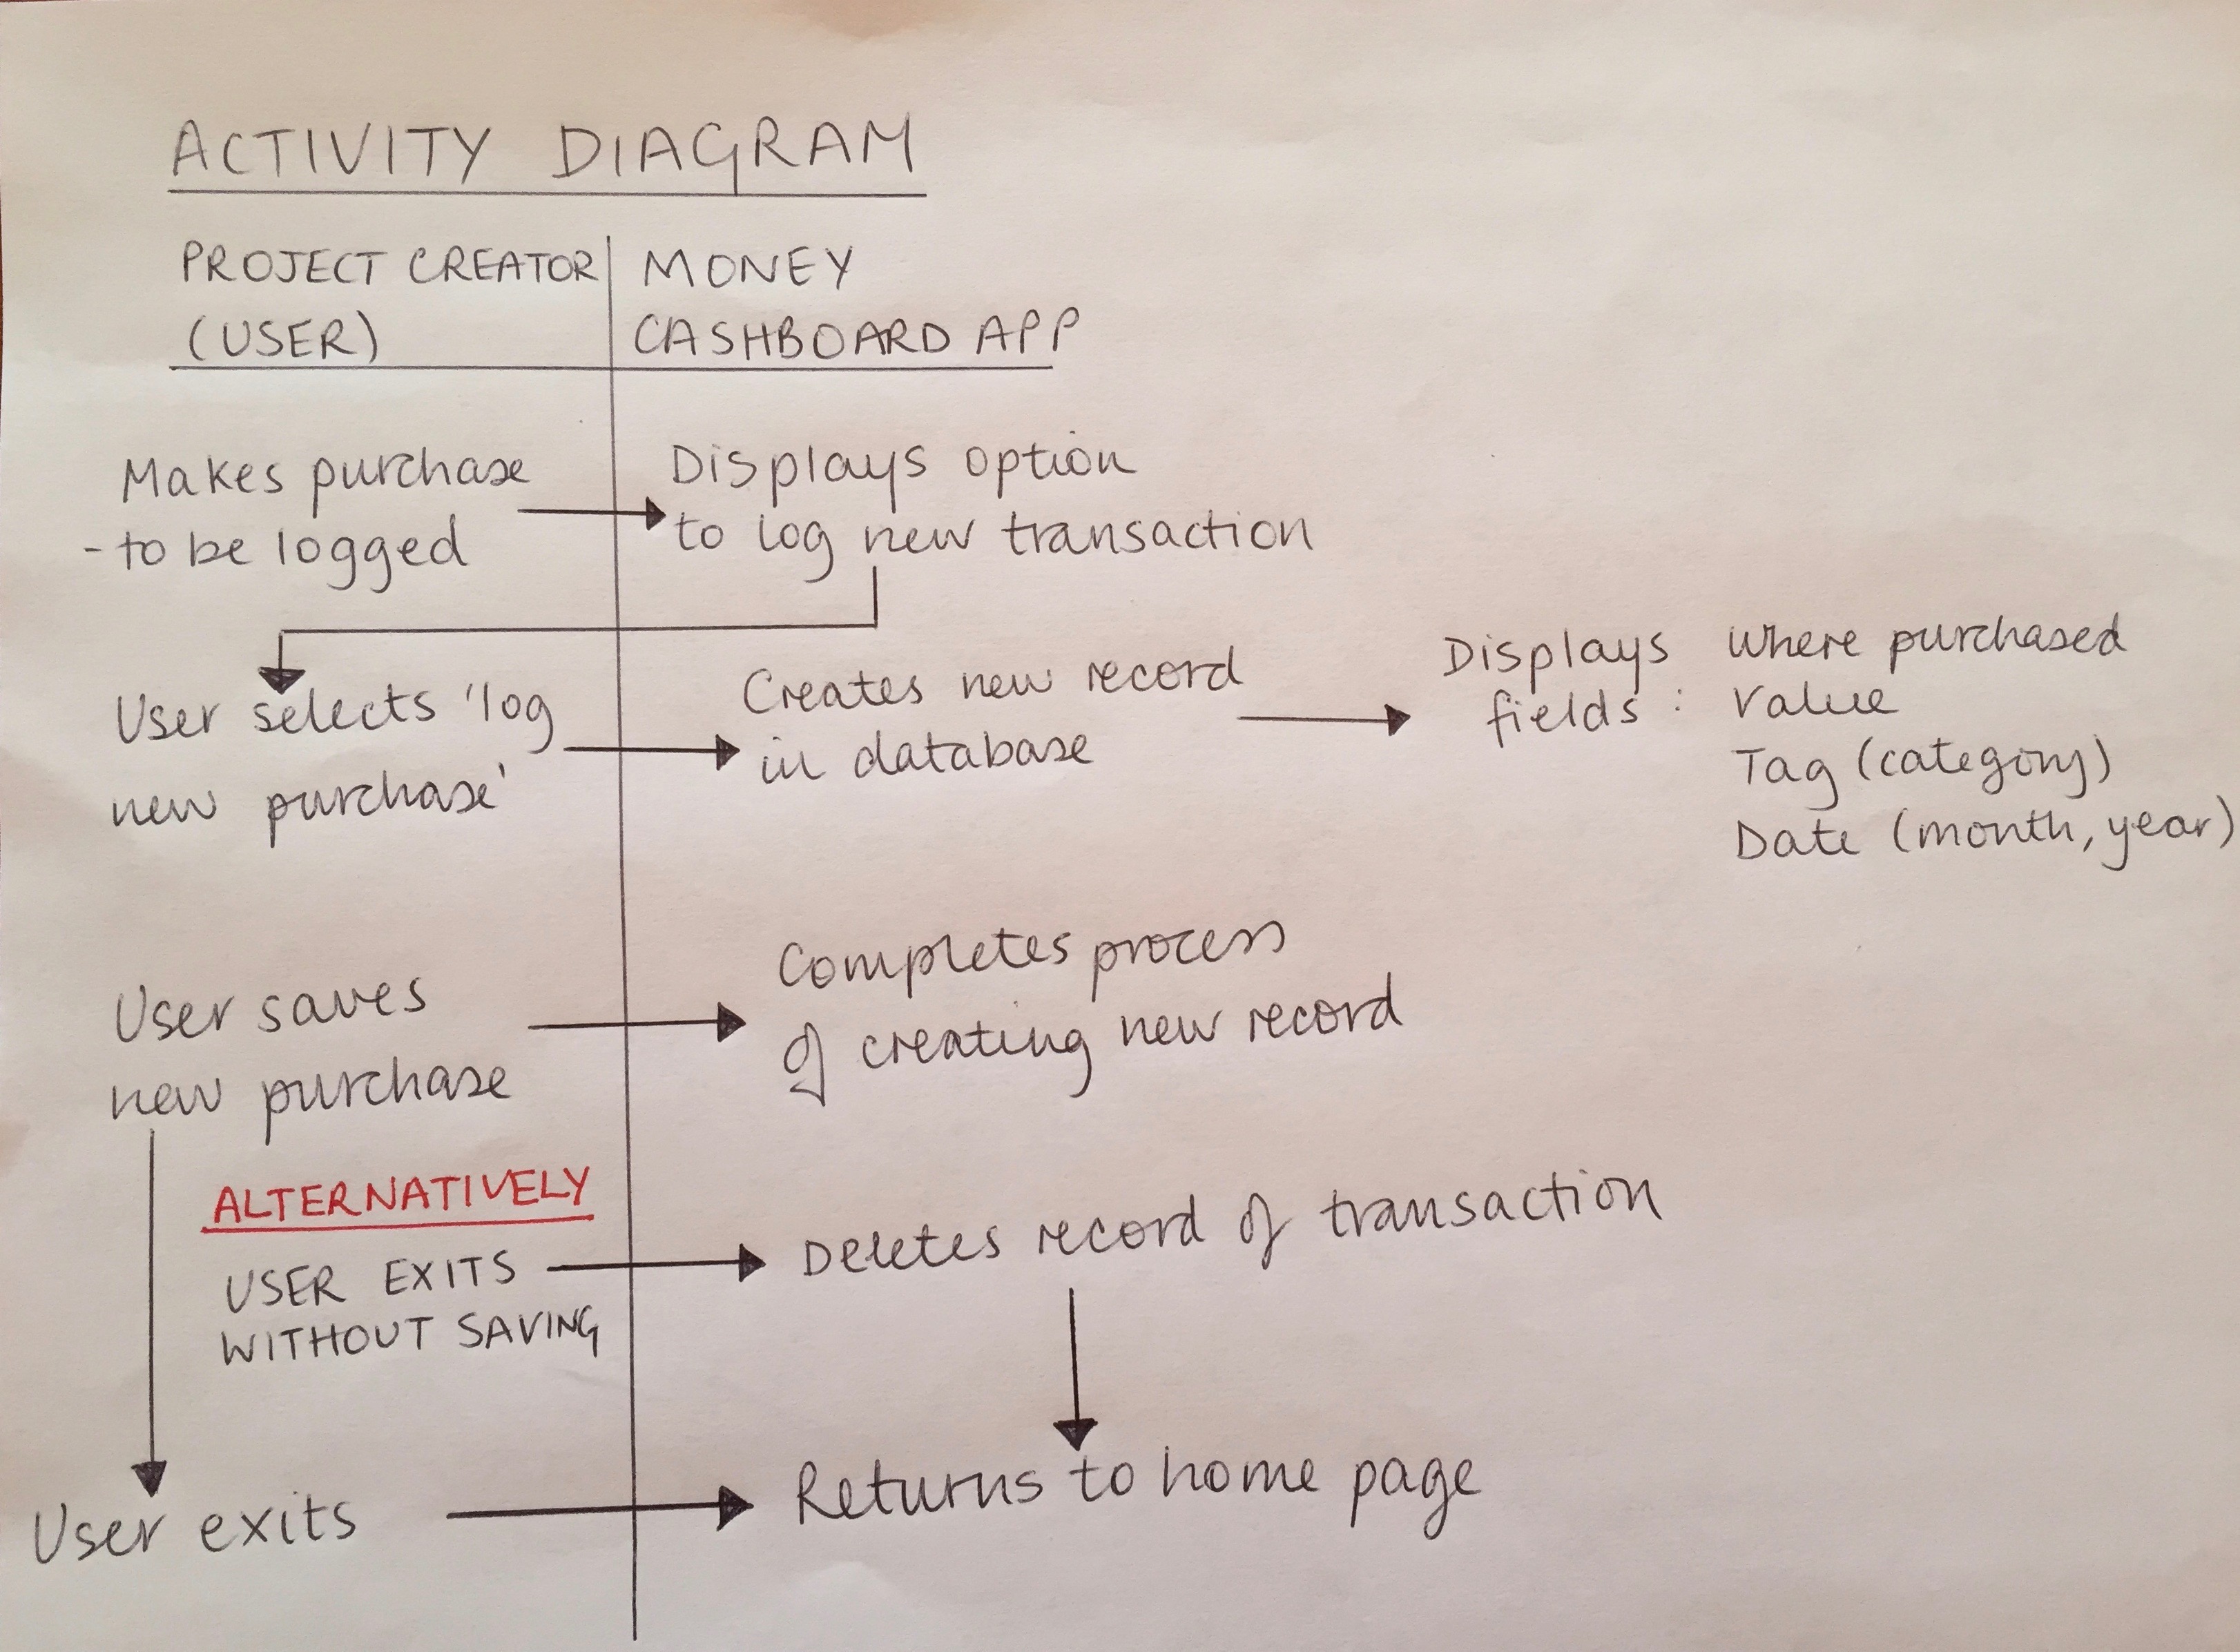 ACTIVITY DIAGRAM
PROJECT CREATOR
(USER)
MONEY
CASHBOARD APP
Makes purchase
- to be logged
Displays option
to log new transaction
User selects 'log
new purchase'
Creates new record
in database
Displays
fields :
Where purchased
Value
Tag (category)
Date (month, year)
User saves
new purchase
Completes process
of creating new record
ALTERNATIVELY
USER EXITS
WITHOUT SAVING
Deletes record of transaction
User exits
Returns to home page